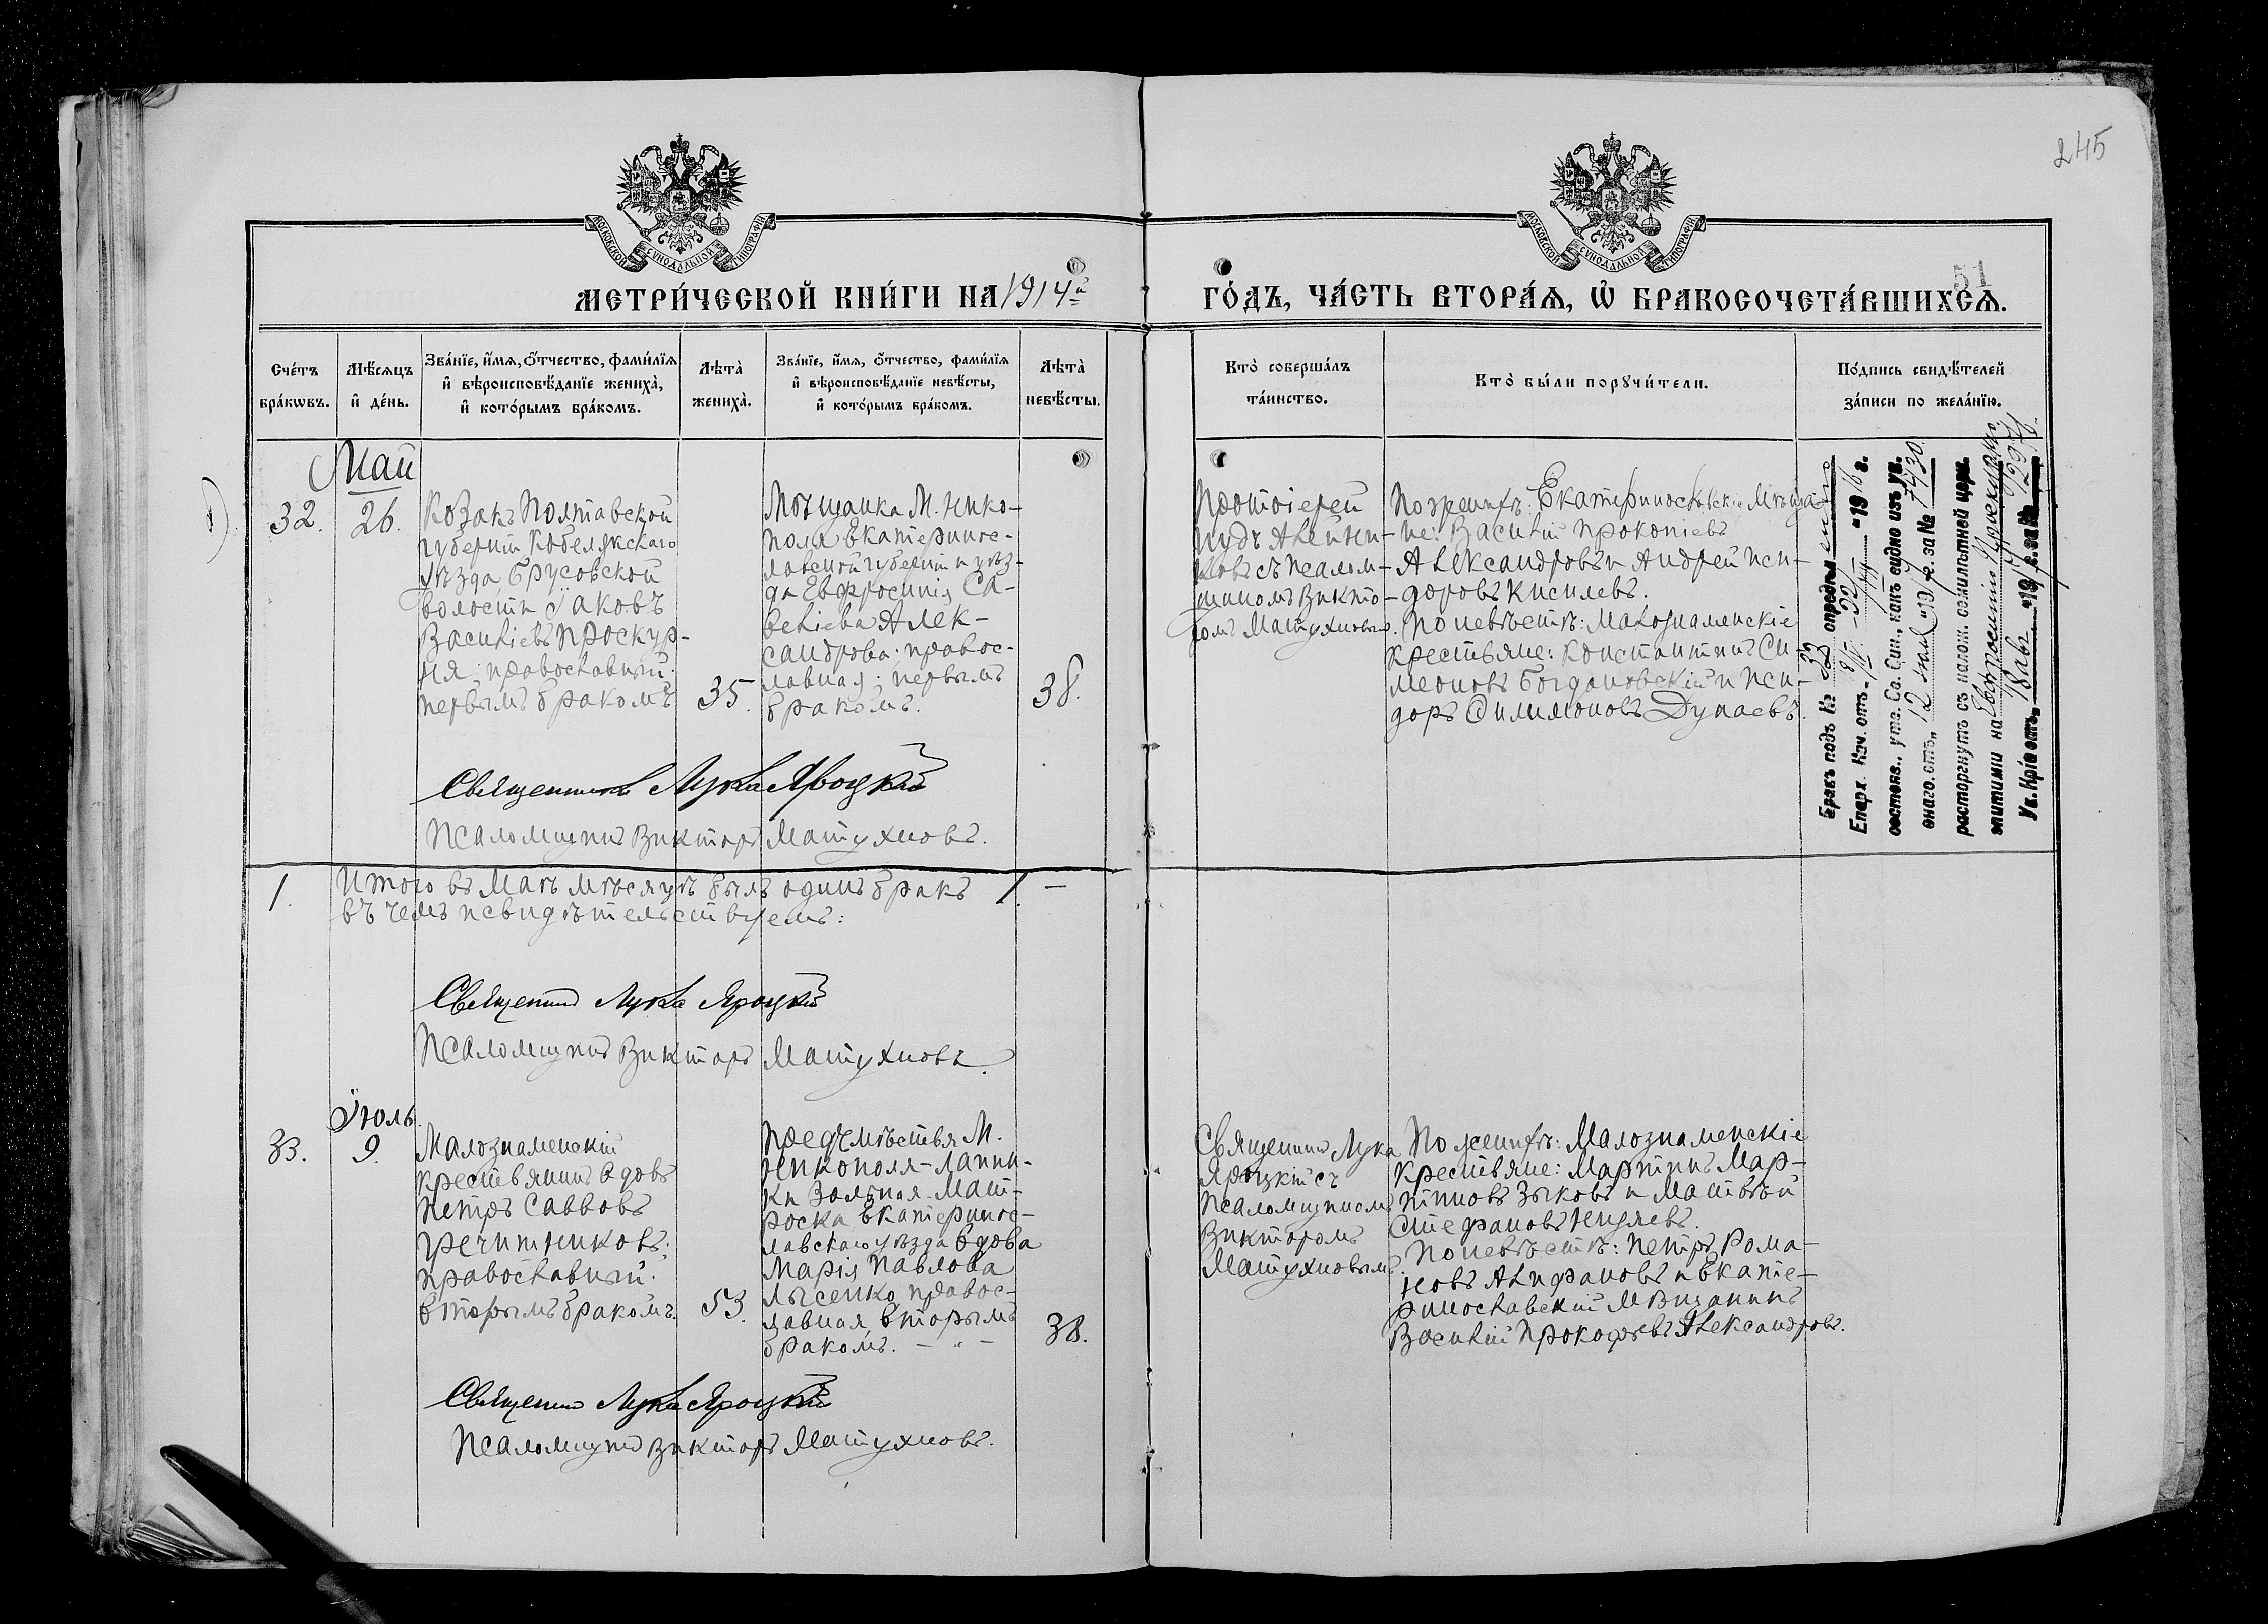 245
51
МОСКОВСКОЙ СѴНОДАЛЬНОЙ ТИПОГРАФІИ
МОСКОВСКОЙ СѴНОДАЛЬНОЙ ТИПОГРАФІИ
МЕТРИ́ЧЕСКОЙ КНИ́ГИ НА 1914й
ГО́ДЪ, ЧА́СТЬ ВТОРА́Ѧ, Ѽ БРАКОСОЧЕТА́ВШИХСѦ.
Сче́тъ
бра́кѡвъ.
Мѣ́сѧцъ
и҆ де́нь.
Зва́нїе, и҆́мѧ, ѻ҆́тчество, фами́лїѧ
и҆ вѣроисповѣ́данїе жениха̀,
и҆ кото́рымъ бра́комъ.
Лѣта̀
жениха̀.
Зва́нїе, и҆́мѧ, ѻ҆́тчество, фами́лїѧ
и҆ вѣроисповѣ́данїе невѣ́сты,
и҆ кото́рымъ бра́комъ.
Лѣта̀
невѣ́сты.
Кто̀ соверша́лъ
та́инство.
Кто̀ бы́ли порꙋчи́тели.
По́дпись свидѣ́телей
за́писи по жела́нїю.
Май
32.
26.
Козакъ Полтавской
губерніи Кобелякскаго
уѣзда Брусовской
волости Іаковъ
Василіевъ Проскур-
ня; православный:
первымъ бракомъ
35.
Мѣщанка М. Нико-
поля Екатеринос-
лавской губерніи и уѣз-
да Евфросинія Са-
веліева Алек-
сандрова: правос-
лавная: первымъ
бракомъ.
38.
Протоіерей
съ псалом-
щикомъ Викто-
ромъ Матухновымъ.
По женихѣ: Екатеринославскіе мѣща-
не: Василій Прокопіевъ
Александровъ и Андрей Иси-
доровъ Киселевъ.
По невѣстѣ: Малознаменскіе
крестьяне: Константинъ Си-
меоновъ Богдановскій и Иси-
доръ Филимоновъ Дунаевъ.
Бракъ подъ № 33 опредѣленіемъ
Епарх. Нач. отъ „ 1916 г.
состояв., утв. Св. Син., какъ видно изъ ук.
онаго отъ „12 іюля „1917 г. за № 7430
расторгнутъ съ налож. семилѣтней церк.
эпитиміи на Евфросинію
Ук. Кр. 1917 г. за №
Священникъ Лука Яроцкій
Псаломщикъ Викторъ Матухновъ.
1.
Итого въ Маѣ мѣсяцѣ былъ одинъ бракъ 1. —
въ чемъ и свидѣтельствуемъ:
Священникъ Лука Яроцкій
Псаломщикъ Викторъ Матухновъ.
Іюль.
33.
9.
Малознаменскій
крестьянинъ вдовъ
Петръ Савовъ
Гречишниковъ;
православный:
вторымъ бракомъ.
53.
Предмѣстья М.
Никополя-Лапин-
ки
Екатеринос-
лавскаго уѣзда вдова
Марія Павлова
Лысенко правос-
лавная вторымъ
бракомъ. — „ —
38.
Священникъ Лука
Яроцкій съ
псаломщикомъ
Викторомъ
Матухновымъ.
По женихѣ: Малознаменскіе
крестьяне: Мартинъ Мар-
тиновъ Зыковъ и Матвѣй
Стефановъ
По невѣстѣ: Петръ Рома-
новъ и Екате-
ринославскій мѣщанинъ
Василій Прокофьевъ Александровъ.
Священникъ Лука Яроцкій
Псаломщикъ Викторъ Матухновъ.